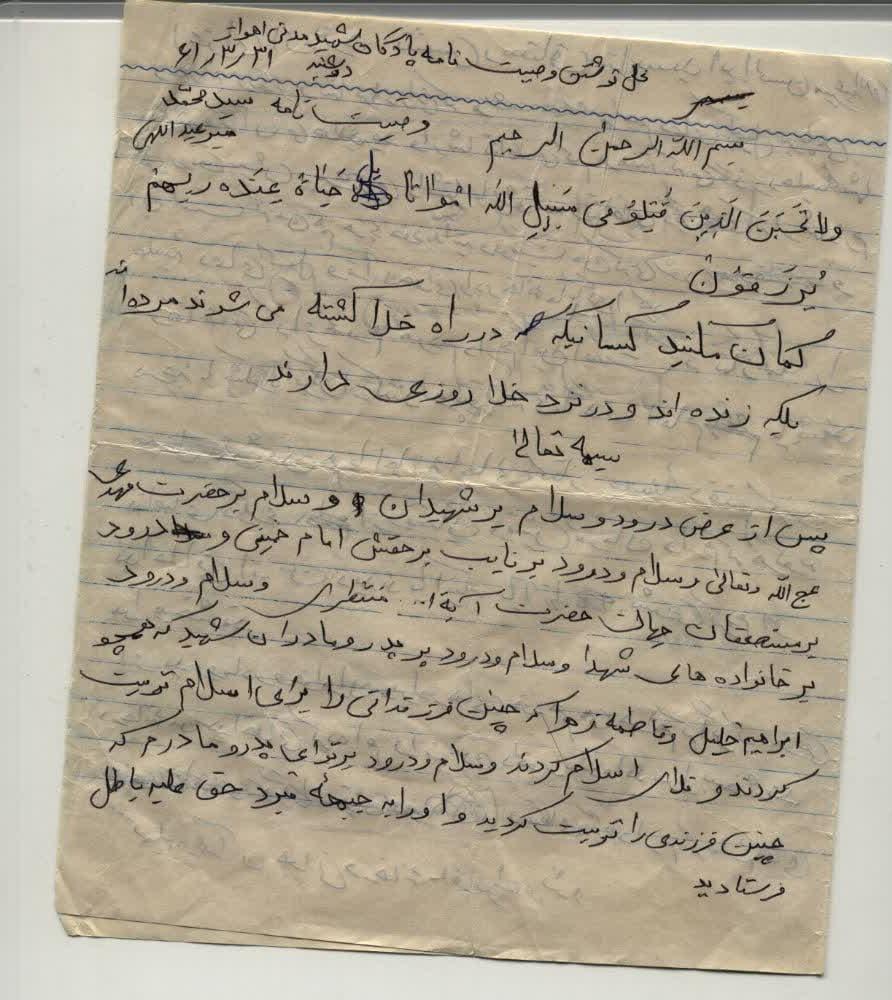 محل نوشتن وصیت نامه پادگان شهید مدنی اهواز
دوشنبه ۶۱/۳/۳۱
بسم الله الرحمن الرحیم وصیت نامه سید محمد
میر عبداللهی
ولا تَحسَبَنَ الَّذِینَ قُتِلُو فی سَبیلِ الله امواتا بل حَیَاهٌ عِندَه ربهم
یُرزَقوُن
گمان مکنید کسانیکه در راه خدا کشته می شوند مرده اند
بلکه زنده اند و در نزد خدا روزی دارند
بسمه تعالی
پس از عرض درود و سلام بر شهیدان و سلام بر حضرت مهدی
عج الله وتعالی وسلام ودرود بر نایب بر حقش امام خمینی و درود
بر مستضعفان جهان حضرت آیة ا... منتظری وسلام ودرود
بر خانواده های شهدا وسلام ودرود بر پدر ومادران شهید که همچو
ابراهیم خلیل وفاطمه زهرا که چنین فرزندانی را برای اسلام تربیت
کردند و فدای اسلام کردند وسلام ودرود برتوای پدر و مادرم که
چنین فرزندی را تربیت کردید و اورابه جبهۀ نبرد حق علیه باطل
فرستادید